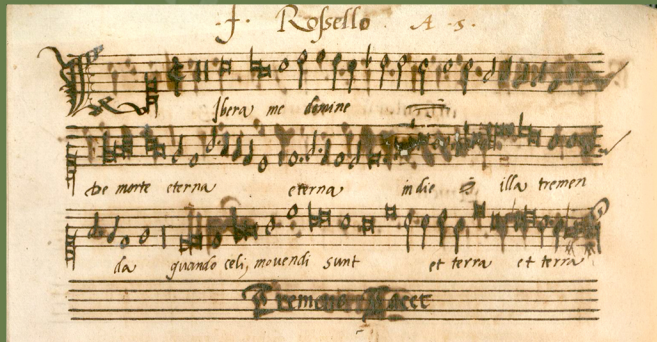 .f. Rossello. A .5.
Ibera me domine
De morte eterna eterna in die illa tremen
da quando celi, movendi sunt et terra et terra
Tremens Tacet